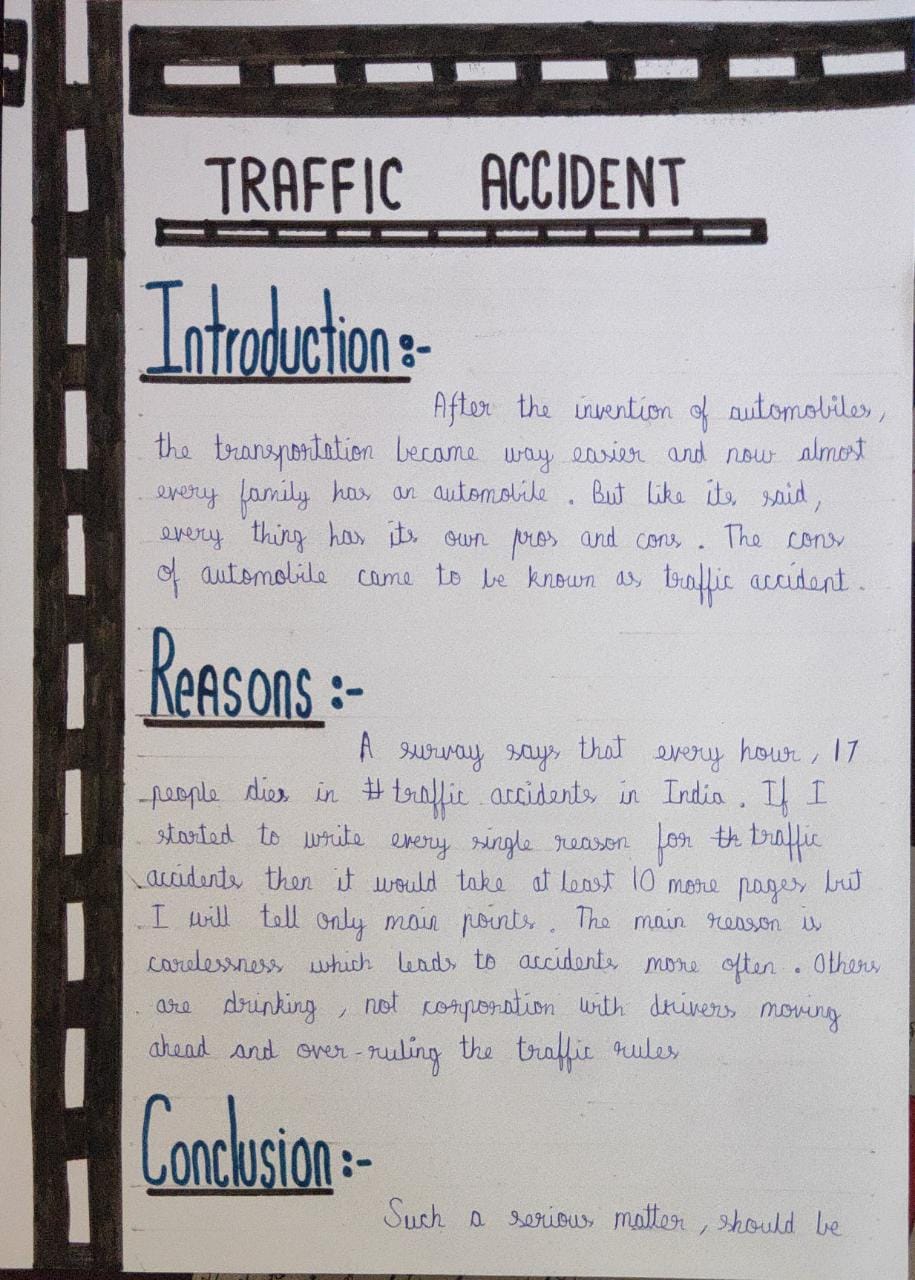 TRAFFIC ACCIDENT
Introduction :-
After the invention of automobiles,
the transportation became way easier and now almost
every family has an automobile . But like its said,
every thing has its own pros and cons . The cons
of automobile came to be known as traffic accident .
Reasons :-
A survay says that every hour , 17
people dies in traffic accidents in India . If I
started to write every single reason for th traffic
accidents then it would take at least 10 more pages but
I will tell only main points . The main reason is
carelessness which leads to accidents more often . Others
are drinking , not corporation with drivers moving
ahead and over-ruling the traffic rules
Conclusion :-
Such a serious matter , should be